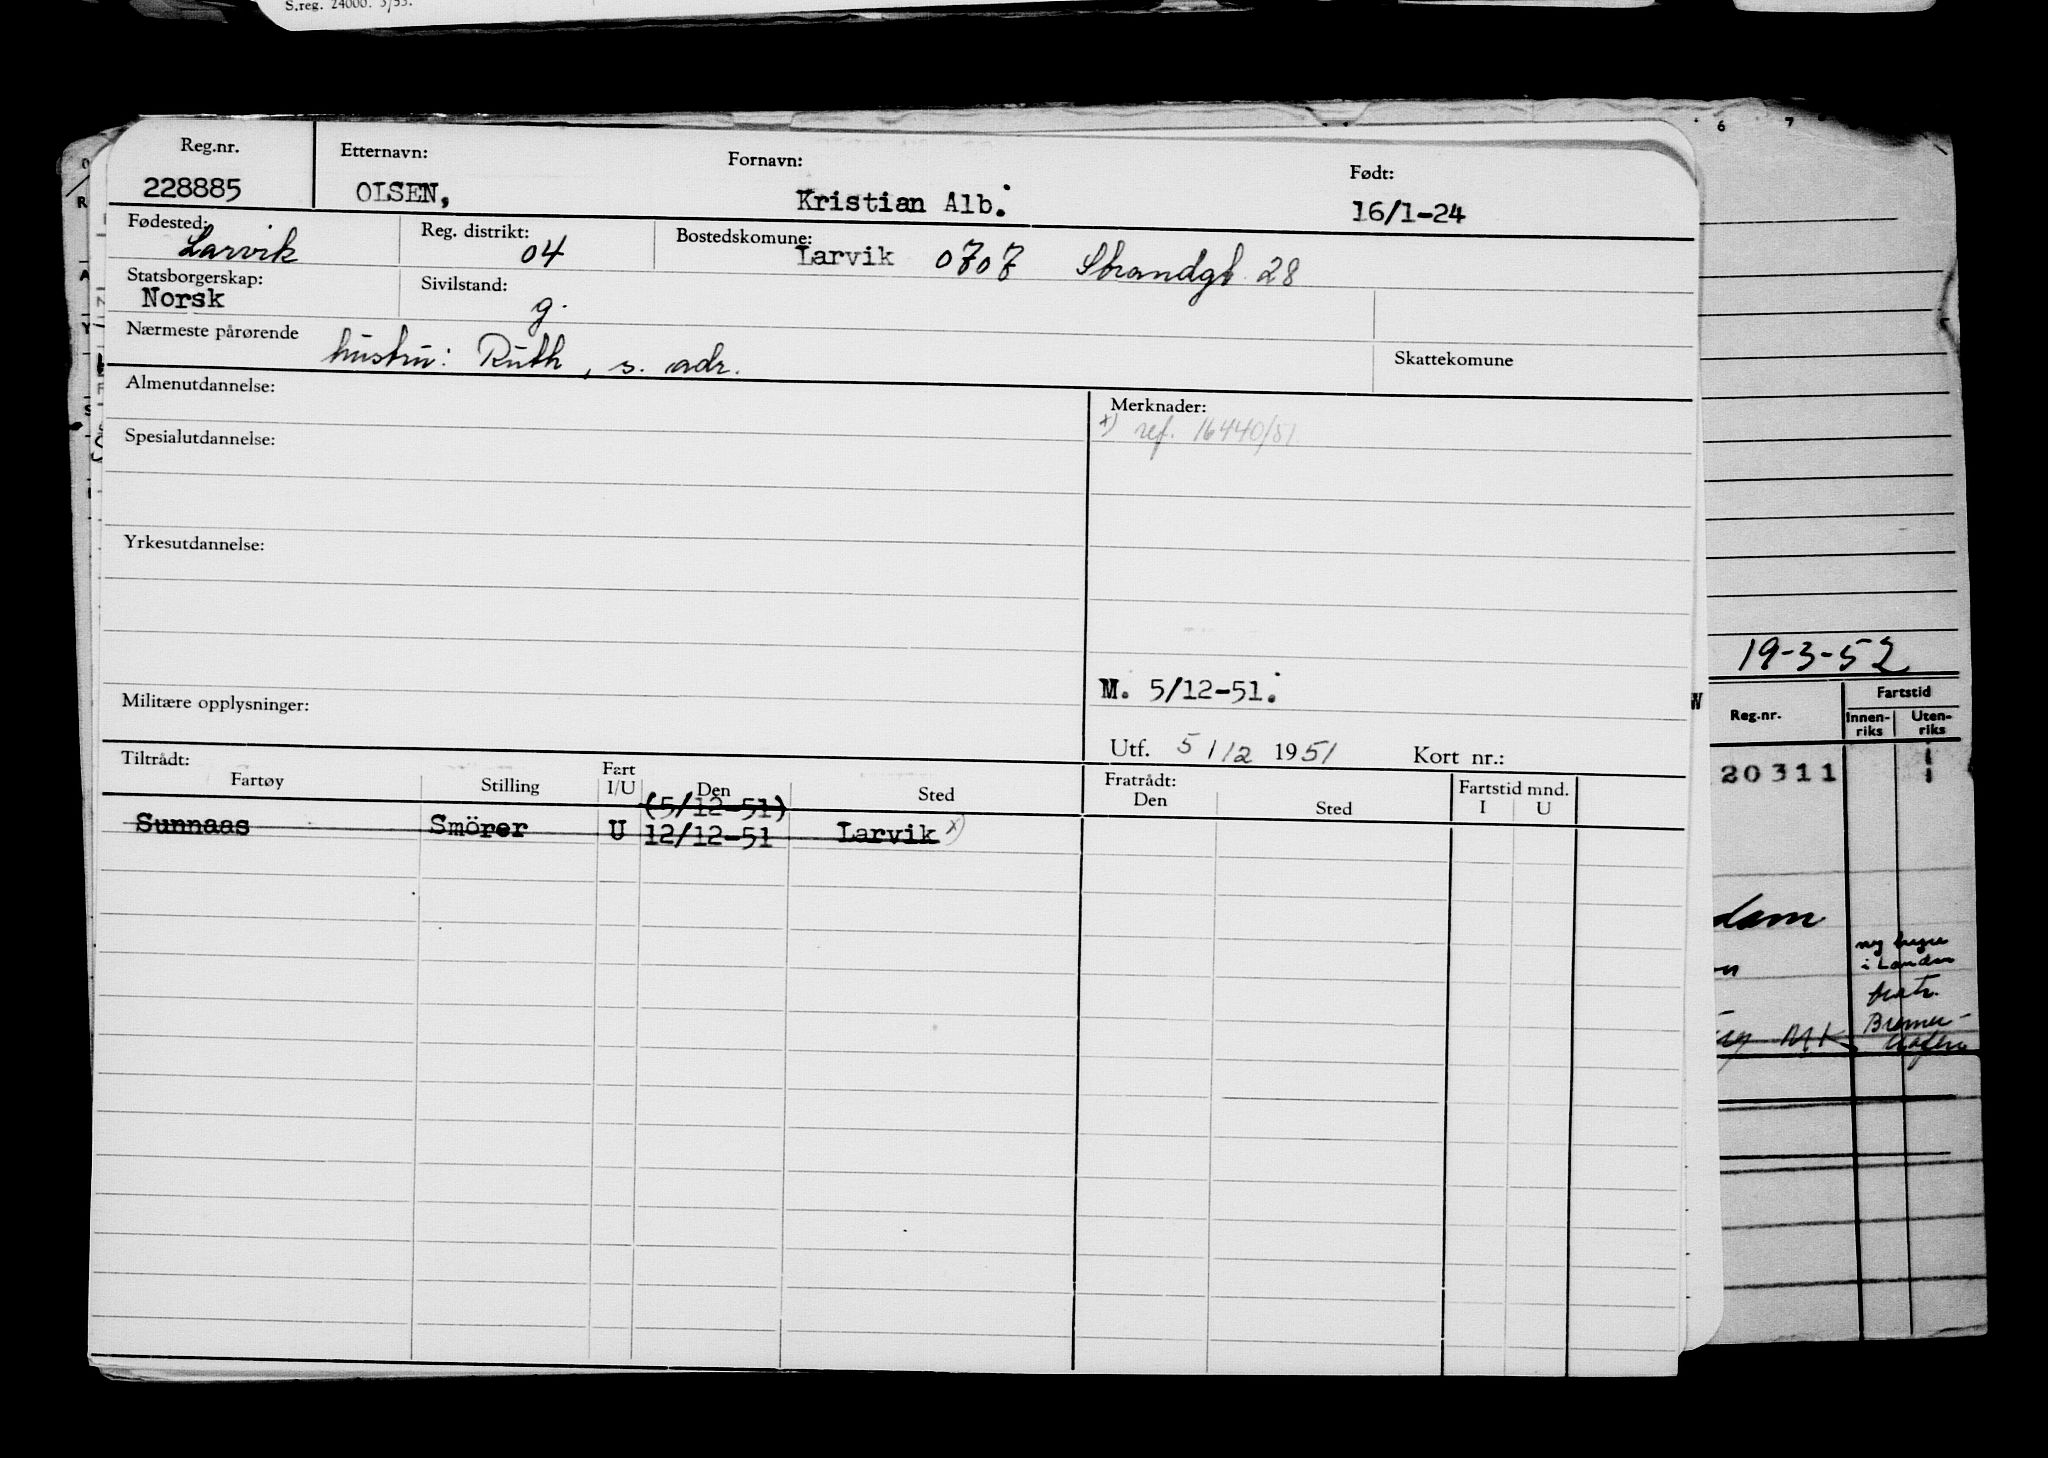 S.reg. 24000. 3/53.
6 7
Reg.nr. Etternavn: Fornavn: Født:
228885 OLSEN, Kristian Alb. 16/1-24
Fødested: Larvik Reg. distrikt: 04 Bostedskomune: Larvik 0707 Strandgt 28
Statsborgerskap: Norsk Sivilstand: g.
Nærmeste pårørende hustru: Ruth, s. adr. Skattekomune
Almenutdannelse: Merknader:
x) ref. 16440/51
Spesialutdannelse:
Yrkesutdannelse:
19-3-52
M. 5/12-51.
Militære opplysninger:
Utf. 5/12 1951 Kort nr.:
Reg.nr. Fartstid
Innen-riks Uten-riks
20311
Tiltrådt: Fratrådt:
Fartøy Stilling Fart I/U Den Sted Den Sted Fartstid mnd. I U
(5/12-51)
Sunnaas Smörer U 12/12-51 Larvik x)
dam